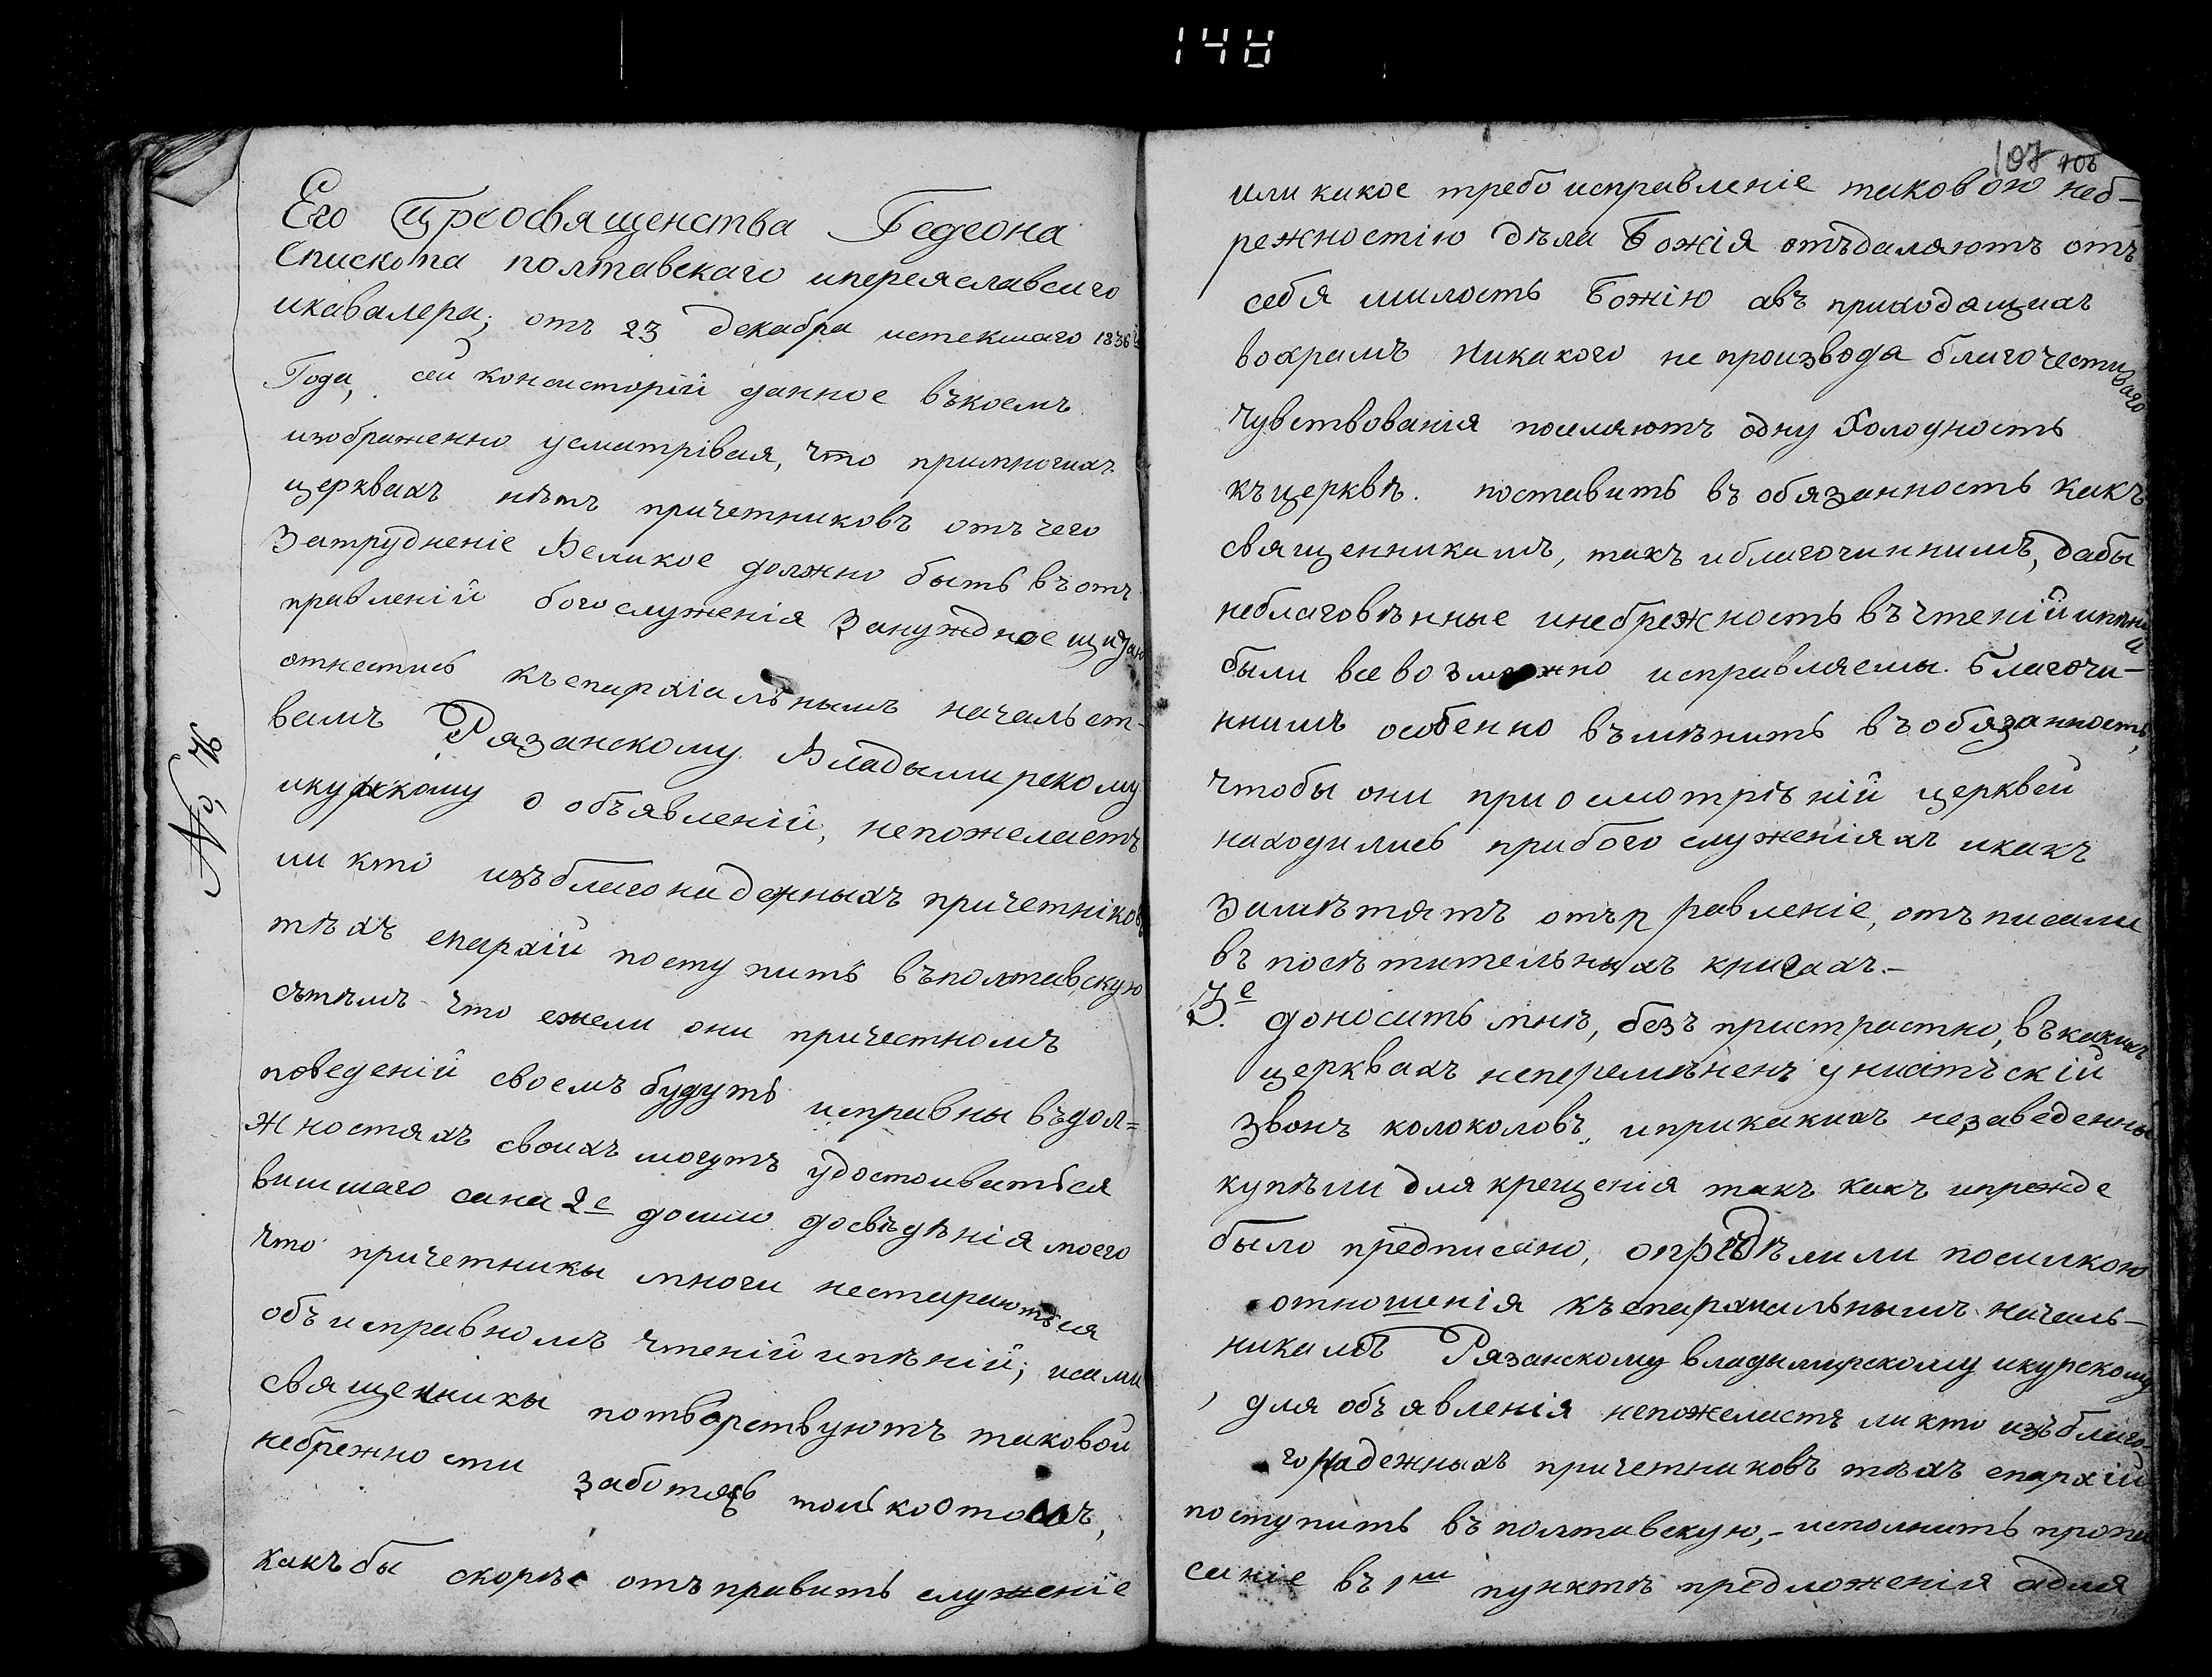 148
Его Преосвященства Гедеона
Епископа полтавскаго ипереяславскаго
икавалера; отъ 23 декабра истекшаго 1836
Года, сей консисторій данное въкоемъ
изображенно усматрівая, что примногихъ
церквахъ нѣтъ причетниковъ отъ чего
Затрудненіе Великое должно быть въ отъ
правленій богослуженія Занужdное
отнестись къепархіальнымъ начальст-
вамъ Рязанскому Владымирскому
икурскому о объявленій, непожелаетъ
ли кто изъблагонадежныхъ причетніковъ
тѣхъ епархій поступить въполтавскую
сътѣмъ что ежели они причестномъ
поведеній своемъ будутъ исправны въдол=
жностяхъ своихъ могутъ удостоиватся
вишшаго сана 2е дошло досвѣдѣнія моего
что причетники многи нестараются
объ исправномъ чтеній ипѣній; исами
священники потворствуютъ таковой
небрежности заботясь толькоотомъ,
какъ бы скорѣе отъправить служеніе
№ 16
107 106
или какое требо исправленіе таковою неб-
режностію дѣла Божія отъдаляютъ отъ
себя милость Божію авъ приходящихъ
вохрамъ Никакого не производя благочестиваго
Чувствованія поселяютъ одну Холодность
къцерквѣ. поставить въ обязанность какъ
священникамъ, такъ иблагочиннимъ, дабы
неблаговѣнные инебрежность въчтеній ипѣній
были всевозможно исправляемы. Благочи-
ннимъ особенно вѣмѣнить въобязанность,
Чтобы они приосмотрѣній церквей
находились прибогослуженіяхъ икакъ
замѣтятъ отъправленіе, отъписали
въ посѣтительныхъ кригахъ.-
3.е доносить мнѣ, безъ пристрастно, въкакихъ
церквахъ неперемѣненъ униатъскій
звонъ колоколовъ, иприкакихъ незаведенны
купѣли для крещенія такъ какъ ипрежде
было предписано, опредѣлили посилкою
отношенія къепархиальнымъ началь-
никамъ Рязанскому владымирскому икурскому
, для объявленія непожелаетъ ли кто изъблаго-
гонадежныхъ причетниковъ тѣхъ епархій
поступить въ полтавскую,- исполнить пропи
саніе въ 1мъ пунктѣ предложенія адля